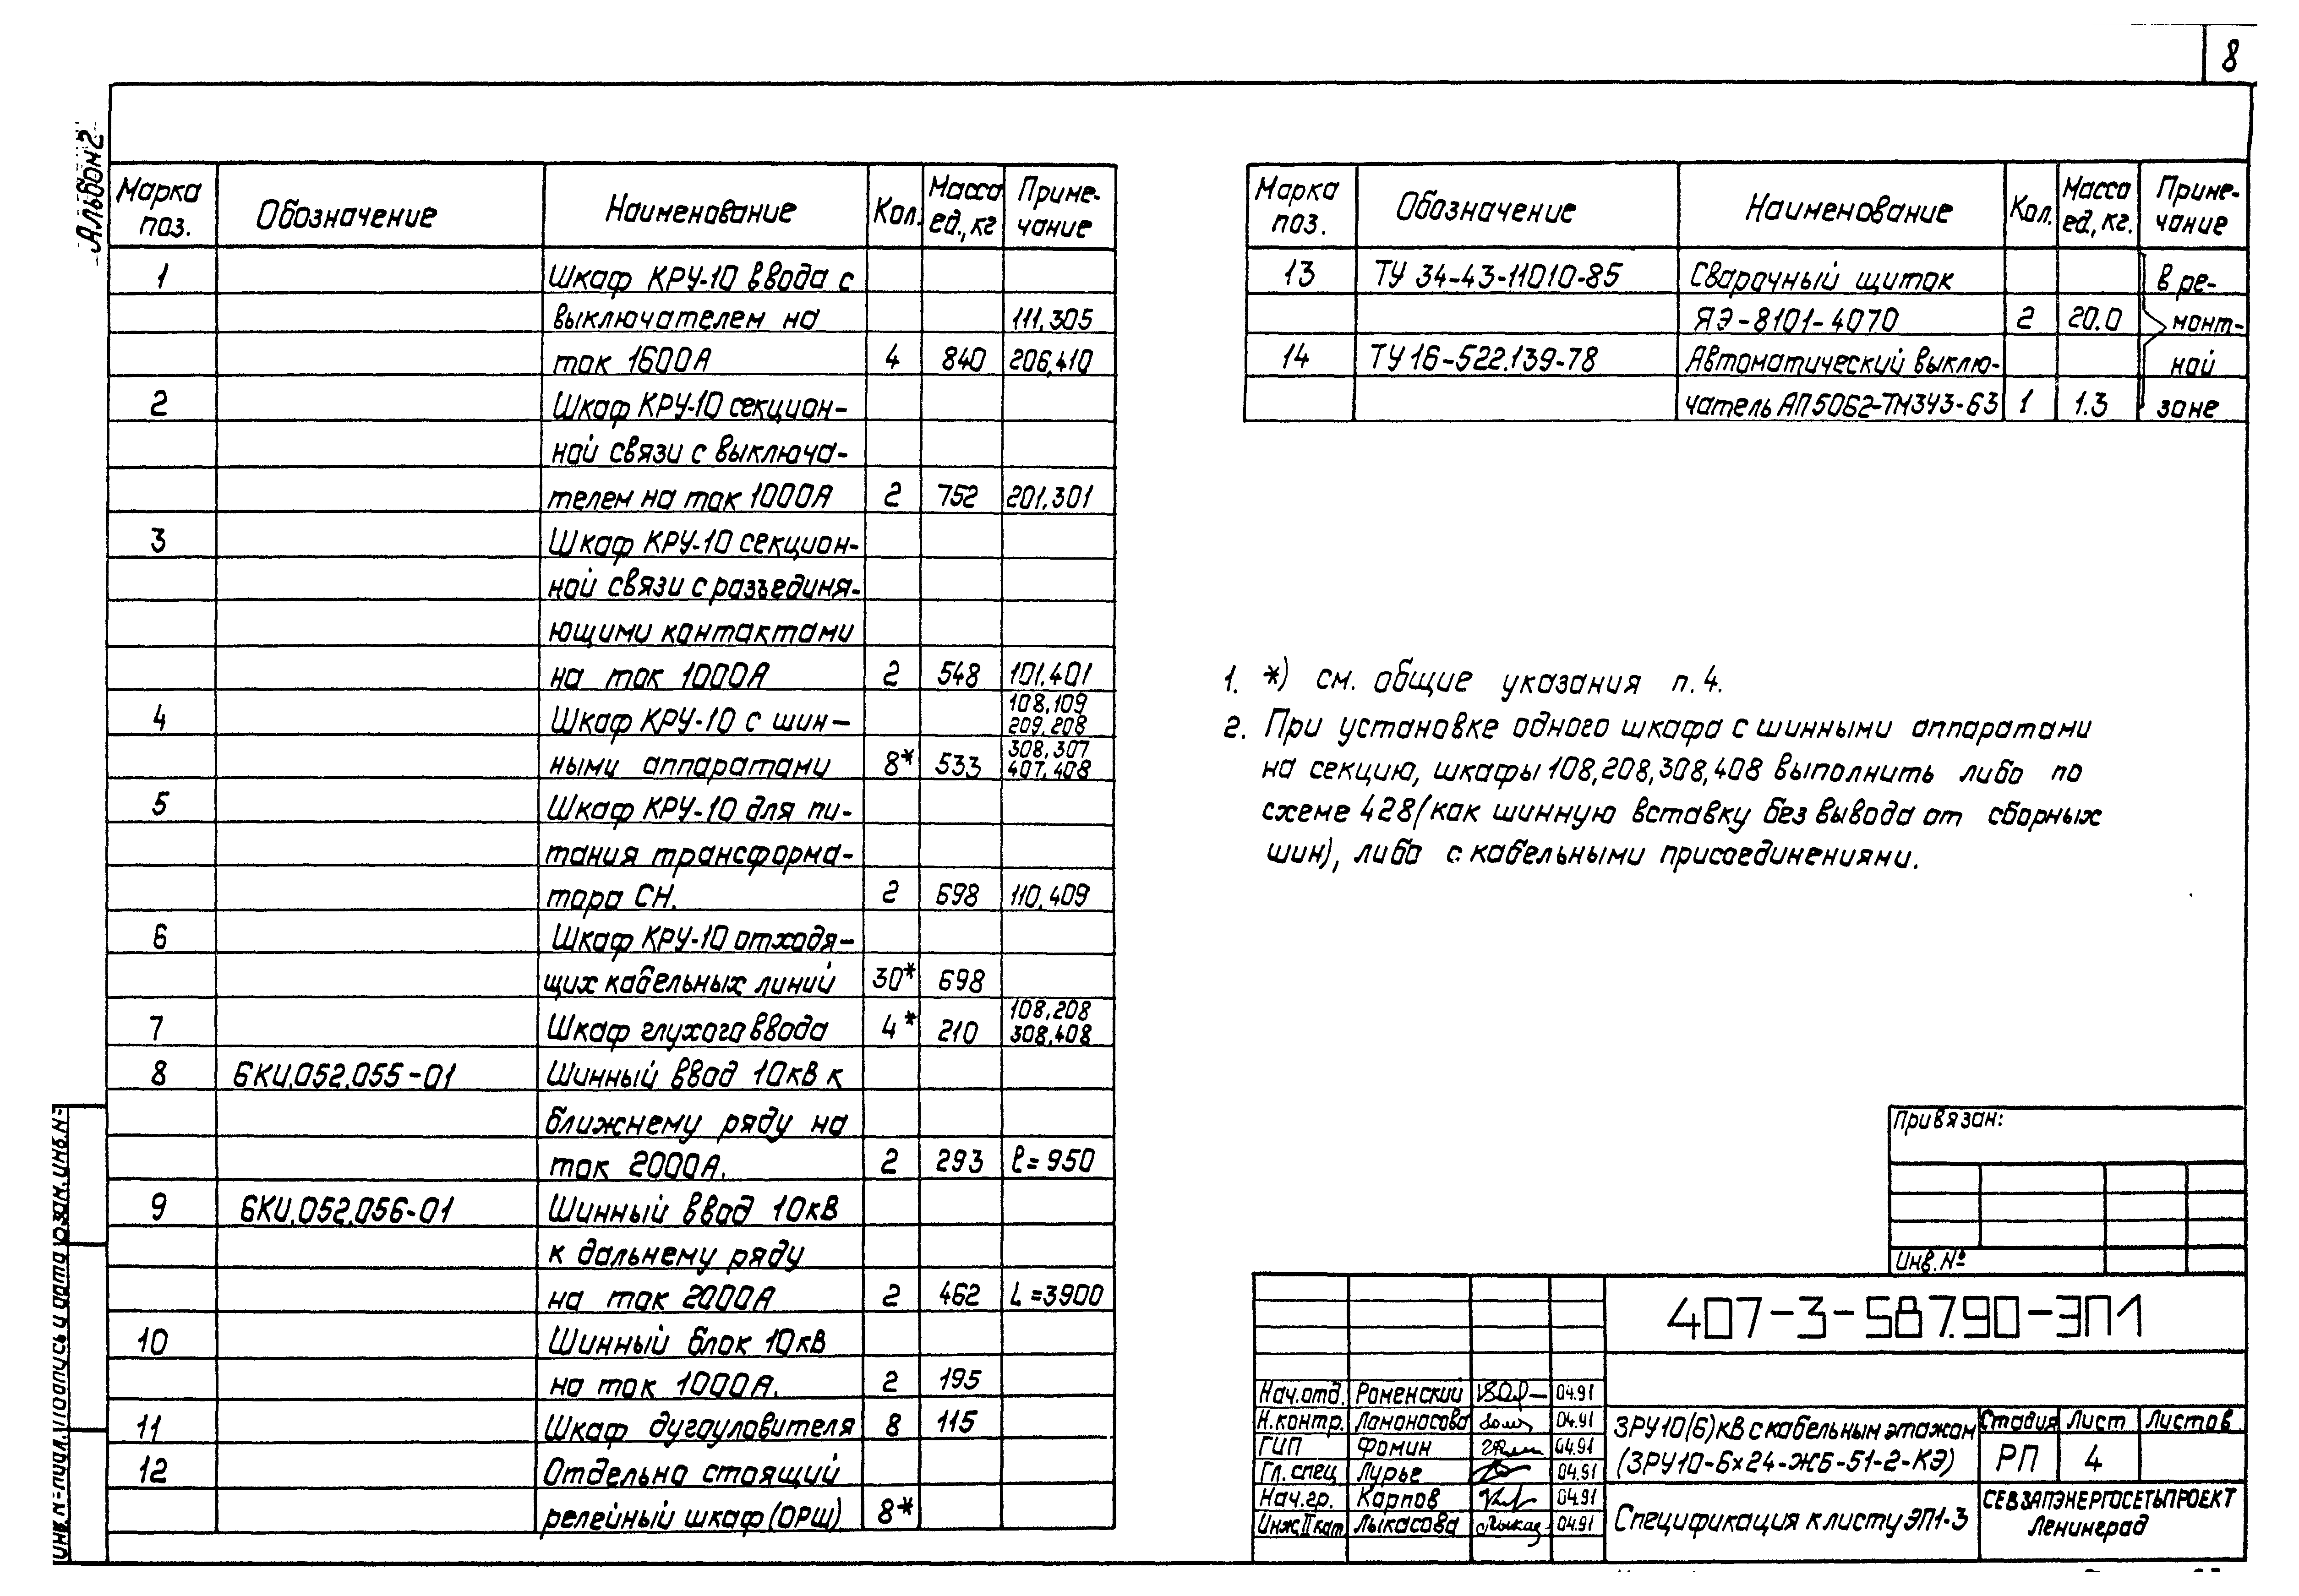 8
Альбом 2
Марка поз. Обозначение Наименование Кол. Масса ед., кг Приме-чание
1 Шкаф КРУ-10 ввода с
выключателем на 111.305
ток 1600А 4 840 206,410
2 Шкаф КРУ-10 секцион-
ной связи с выключа-
телем на ток 1000А 2 752 201.301
3 Шкаф КРУ-10 секцион-
ной связи с разъединя-
ющими контактами
на ток 1000А 2 548 101.401
4 Шкаф КРУ-10 с шин- 108,109 209,208
ными аппаратами 8* 533 308,307 407,408
5 Шкаф КРУ-10 для пи-
тания трансформа-
тора СН. 2 698 110,409
6 Шкаф КРУ-10 отходя-
щих кабельных линий 30* 698
7 Шкаф глухого ввода 4* 210 108,208 308,408
8 6КИ.052.055-01 Шинный ввод 10кВ к
ближнему ряду на
ток 2000А. 2 293 ℓ=950
9 6КИ.052.056-01 Шинный ввод 10кВ
к дальнему ряду
на ток 2000А 2 462 L=3900
10 Шинный блок 10кВ
на ток 1000А. 2 195
11 Шкаф дугоуловителя 8 115
12 Отдельно стоящий
релейный шкаф (ОРШ) 8*
Марка поз. Обозначение Наименование Кол. Масса ед., кг. Приме-чание
13 ТУ 34-43-11010-85 Сварочный щиток в ре-
ЯЭ-8101-4070 2 20.0 монт-
14 ТУ 16-522.139-78 Автоматический выклю- ной
чатель АП5062-ТМ3У3-63 1 1.3 зоне
1. *) см. общие указания п.4.
2. При установке одного шкафа с шинными аппаратами
на секцию, шкафы 108,208,308,408 выполнить либо по
схеме 428 (как шинную вставку без вывода от сборных
шин), либо с кабельными присоединениями.
Привязан:
Инв.№
407-3-587.90-ЭП1
Нач.отд. Роменский 04.91
Н.контр. Ломоносова 04.91
ГИП Фомин 04.91
Гл.спец Лурье 04.91
Нач.гр. Карпов 04.91
Инж.II кат Лыкасова 04.91
ЗРУ 10(6)кВ с кабельным этажом
(ЗРУ10-6х24-ЖБ-51-2-КЭ)
Стадия Лист Листов
РП 4
Спецификация к листу ЭП1-3
СЕВЗАПЭНЕРГОСЕТЬПРОЕКТ
Ленинград
Инв.№ подл. Подпись и дата Взам. инв.№